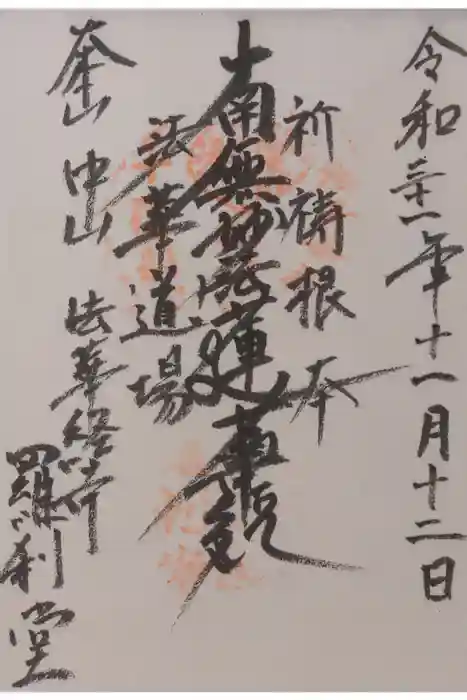 令和三年十一月十二日
祈祷根本
南無妙法蓮華経
法華道場
大本山 中山 法華経寺
羅刹堂